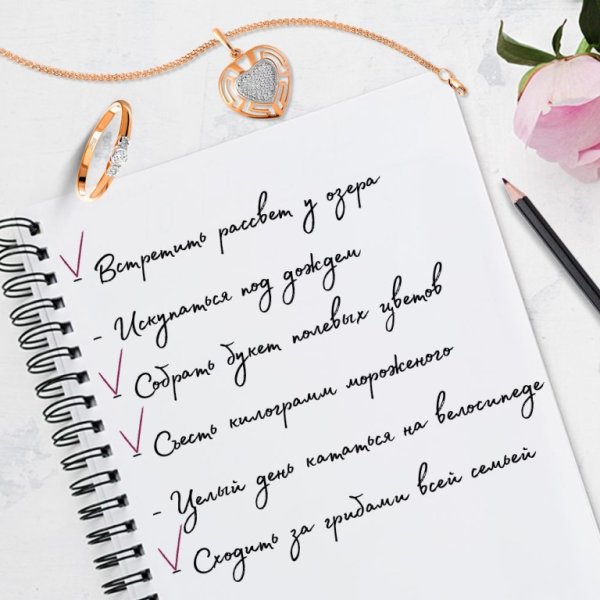 - Встретить рассвет у озера
- Искупаться под дождем
- Собрать букет полевых цветов
- Съесть килограмм мороженого
- Целый день кататься на велосипеде
- Сходить за грибами всей семьей